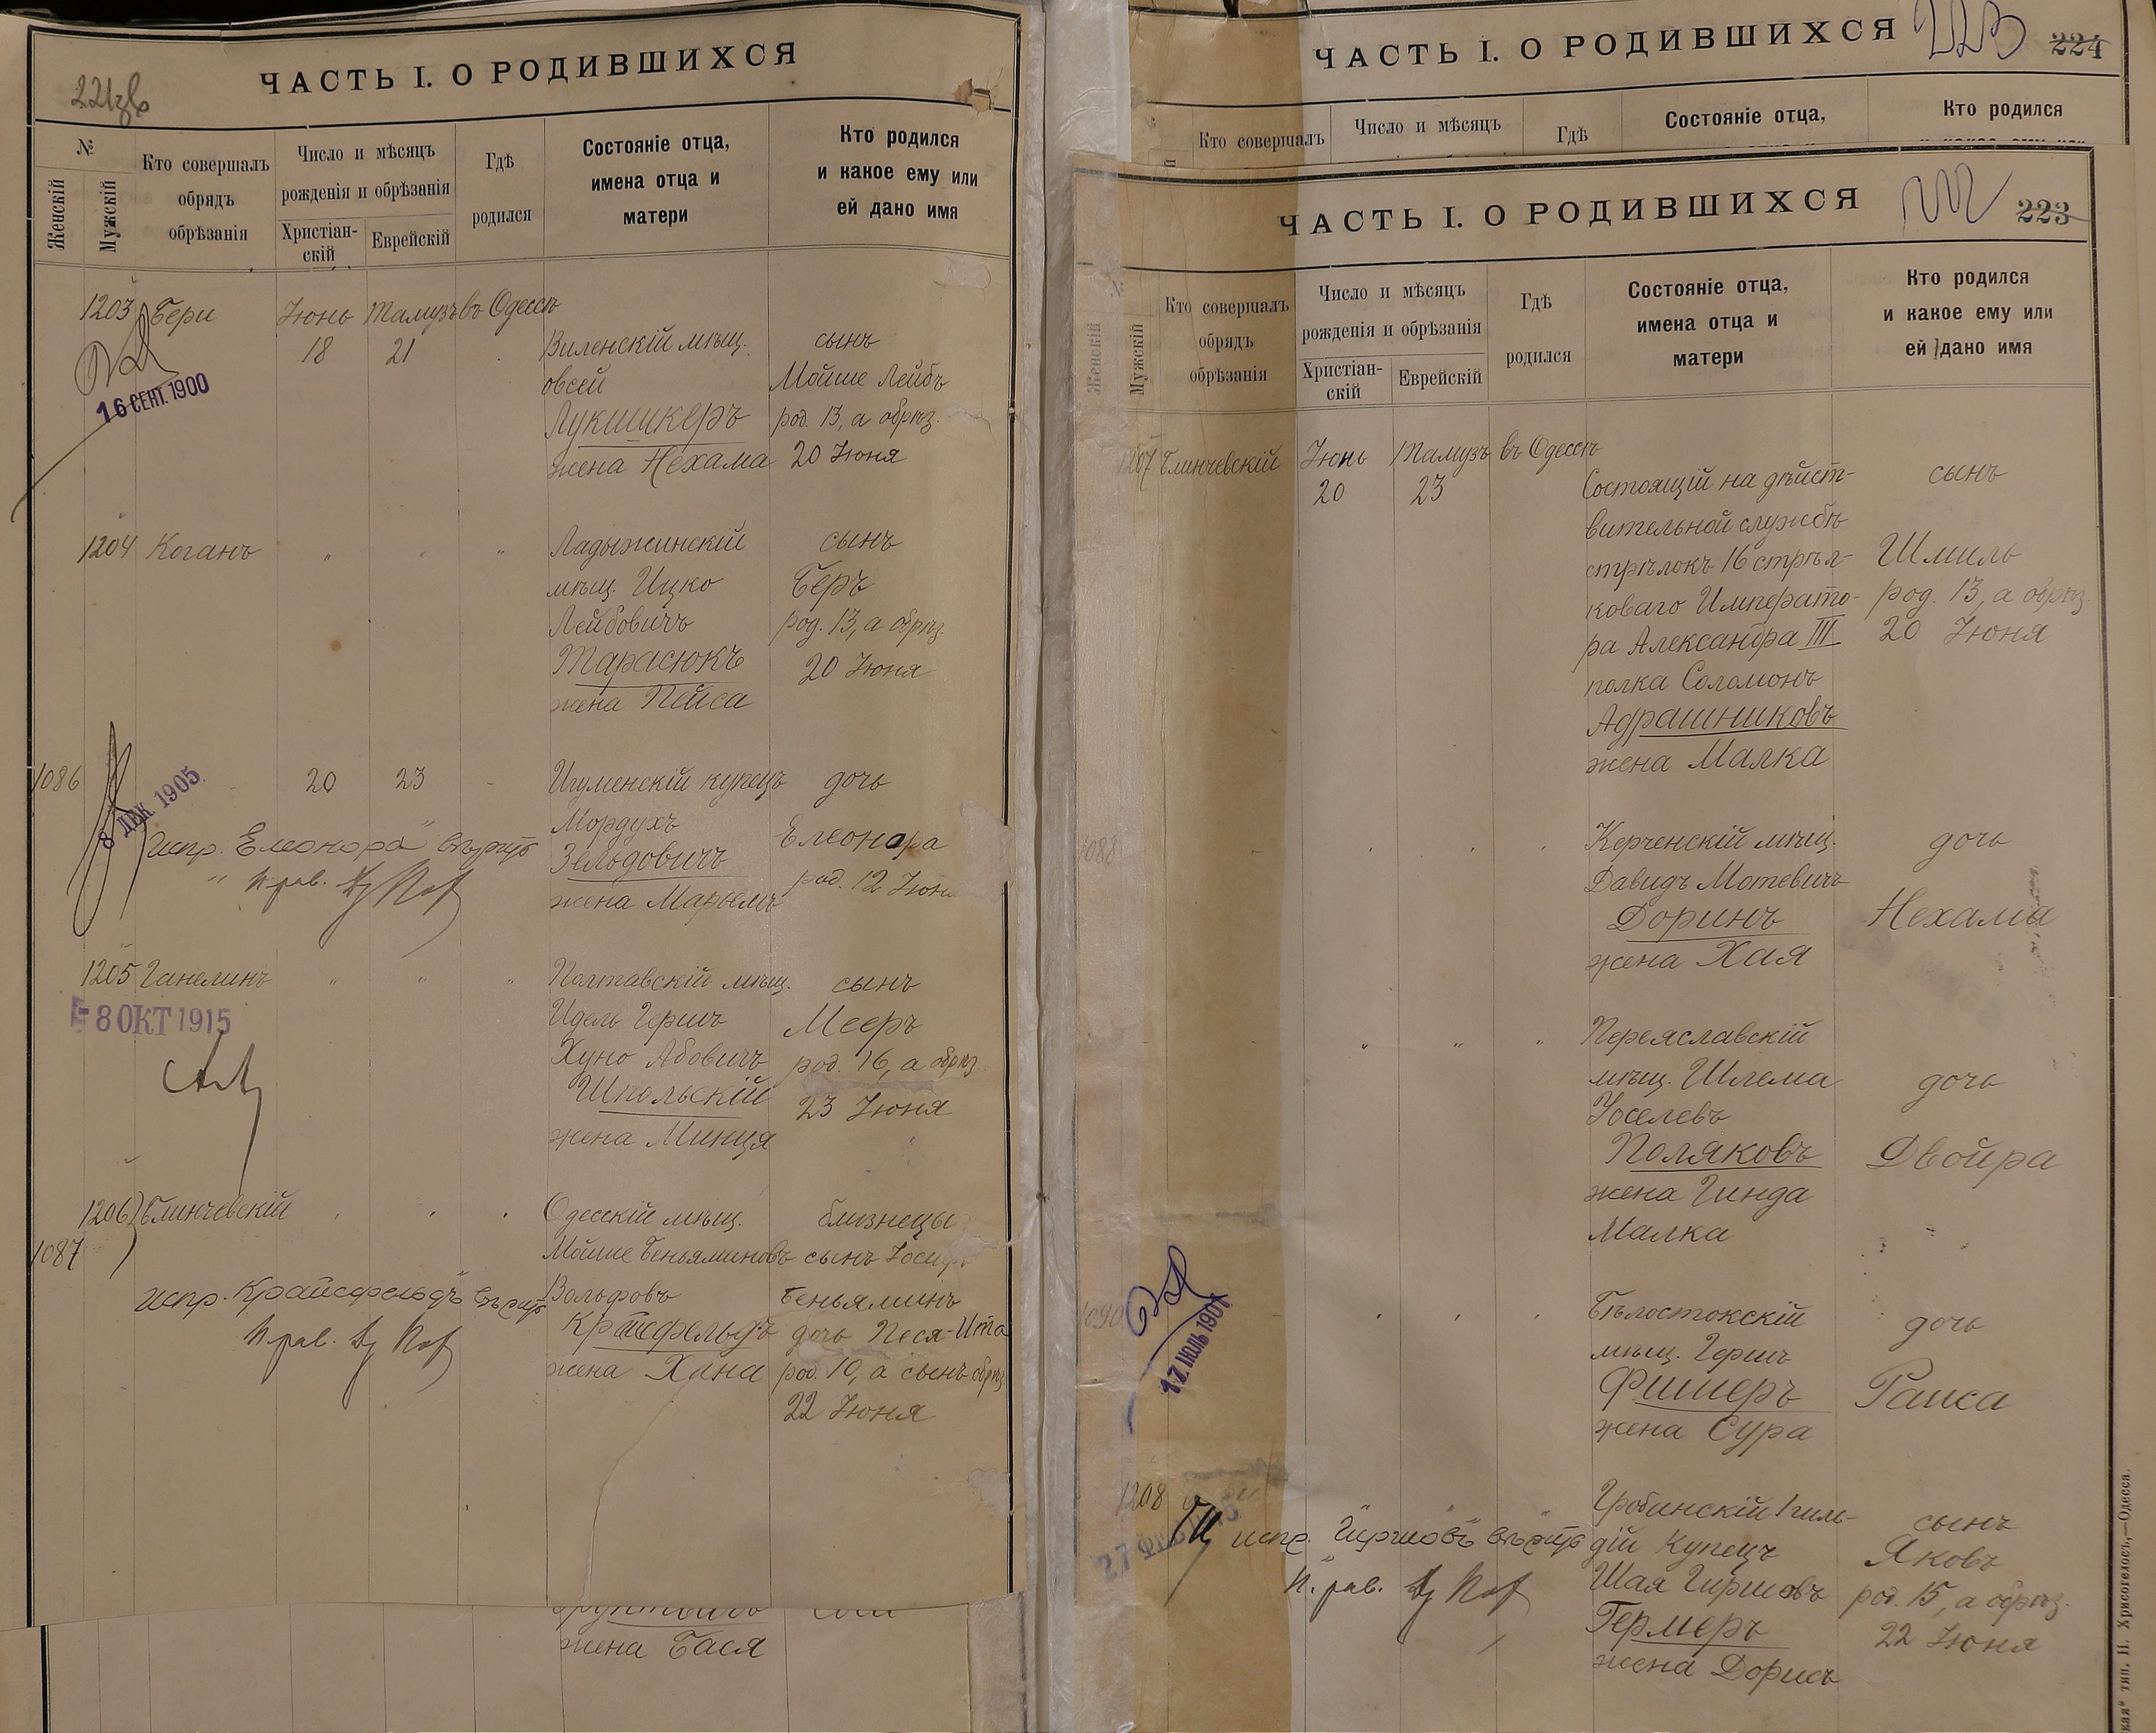 ЧАСТЬ I. О РОДИВШИХСЯ
№
Женскій
Мужскій
Кто совершалъ
обрядъ
обрѣзанія
Число и мѣсяцъ
рожденія и обрѣзанія
Христіан-
скій
Еврейскій
Гдѣ
родился
Состояніе отца,
имена отца и
матери
Кто родился
и какое ему или
ей дано имя
1203 Бери Іюнь Тамузъ въ Одессѣ
18 21
Виленскій мѣщ. сынъ
Овсей Мойше Лейбъ
Лукшикеръ род. 13, а обрѣз.
жена Нехама 20 Іюня
16 СЕНТ. 1900
1204 Коганъ " " " Ладыжинскій сынъ
мѣщ. Ицко Беръ
Лейбовичъ род. 13, а обрѣз.
Тарасюкъ 20 Іюня
жена Пейса
1086 20 23 Игуменскій купецъ дочь
8 ДЕК 1905
Мордухъ Елеонора
испр. "Елеонора" вѣрить
Зельдовичъ род. 12 Іюня
жена Марьемъ
П. рав.
1205 Ганелинъ " " " Полтавскій мѣщ. сынъ
8 ОКТ 1915
Идель Гершъ Мееръ
Хуно Абовичъ род. 16, а обрѣз.
Шпольскій 23 Іюня
жена Минця
1206 Блинчевскій Одесскій мѣщ. близнецы
1087
Мойше Беньяминовъ сынъ Іосифъ
Вольфовъ Беньяминъ
испр. "Крайсфельдъ" вѣрить
Крайсфельдъ дочь Песя-Ита
П. рав.
жена Хана род. 10, а сынъ обрѣз.
22 Іюня
жена Бася
ЧАСТЬ I. О РОДИВШИХСЯ 223 224
Кто совершалъ
Число и мѣсяцъ
Гдѣ
Состояніе отца,
Кто родился
ЧАСТЬ I. О РОДИВШИХСЯ 222 223
№
Женскій
Мужскій
Кто совершалъ
обрядъ
обрѣзанія
Число и мѣсяцъ
рожденія и обрѣзанія
Христіан-
скій
Еврейскій
Гдѣ
родился
Состояніе отца,
имена отца и
матери
Кто родился
и какое ему или
ей дано имя
1207 Блинчевскій Іюнь Тамузъ въ Одессѣ
20 23
Состоящій на дѣйст- сынъ
вительной службѣ
стрѣлокъ 16 стрѣл- Шмиль
коваго Императо- род. 13, а обрѣз.
ра Александра III 20 Іюня
полка Соломонъ
Адрашниковъ
жена Малка
1088 Керченскій мѣщ. дочь
Давидъ Мотевичъ
Доринъ Нехама
жена Хая
" " " Переяславскій
мѣщ. Шлема дочь
Іоселевъ
Поляковъ Двойра
жена Гинда
Малка
1090 Бѣлостокскій дочь
мѣщ. Гершъ
Фишеръ Раиса
жена Сура
12 ІЮЛЬ 1907
1208 Гробинскій 1 гиль- сынъ
испр. "Гиршовъ" вѣрить
дій Купецъ Яковъ
П. рав.
Шая Гиршовъ род. 15, а обрѣз.
Гермеръ 22 Іюня
жена Дорисъ
тип. П. Хрисогелосъ,—Одесса.